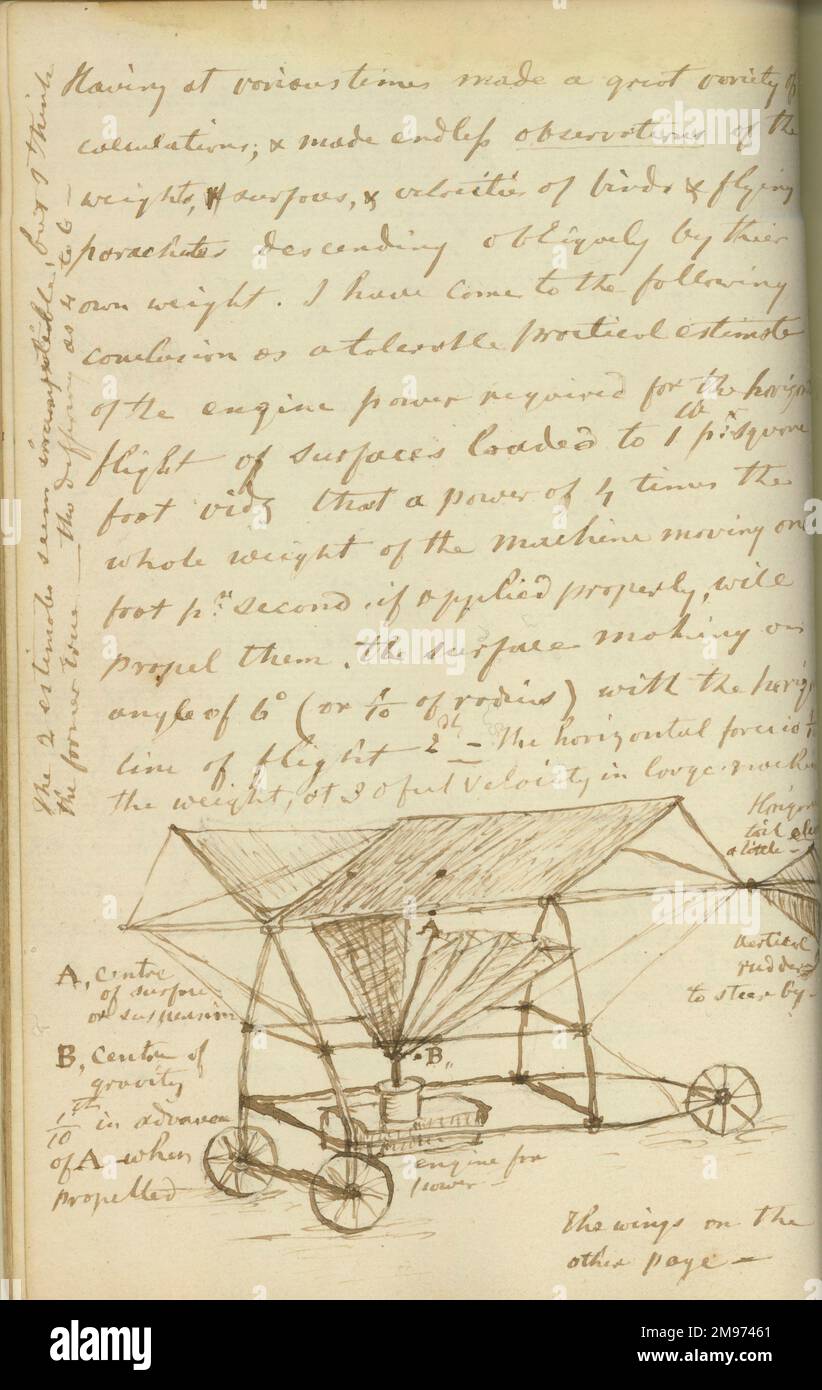 Having at various times made a great variety of
calculations, & made endless observations of the
weights, & surfaces, & velocities of birds & flying
parachutes descending obliquely by their
own weight. I have come to the following
conclusion as a tolerable practical estimate
of the engine power required for the
flight of surfaces loaded to 1 lb pr. square
foot vidz that a power of 4 times the
whole weight of the machine moving one
foot pr. second if applied properly, will
propel them, the surface making an
angle of 6° (or 1/10 of radius) with the
line of flight 2dly – The horizontal force is
the weight, at 30 feet velocity in large
The 2 estimates seem incompatible, but I think
the former true — the difference as 4 to 6 —
tail
a little –
Vertical
rudder
to steer by –
A
A, centre
of surface
or suspension
B, Centre of
gravity
1/10th in advance
of A when
propelled
B
engine for
power –
The wings on the
other page –
alamy
alamy
alamy
Image ID: 2M97461
www.alamy.com